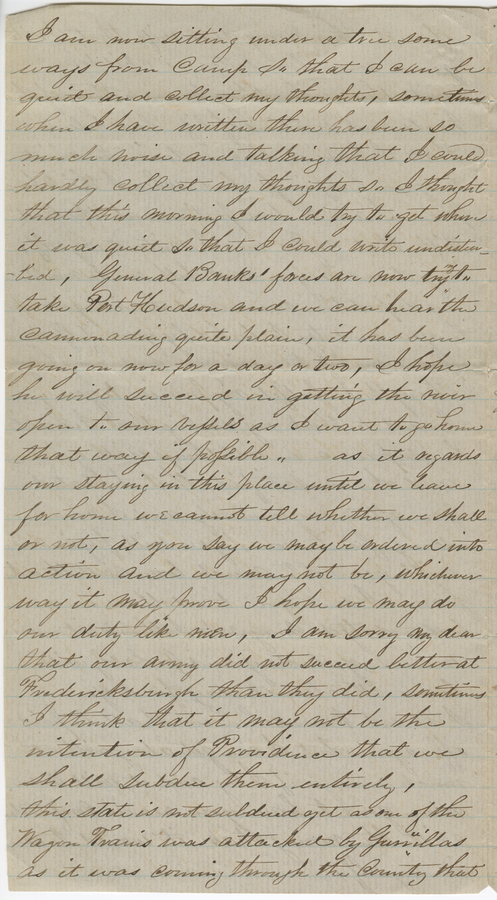 I am now sitting under a tree some
ways from Camp so that I can be
quiet and collect my thoughts, sometimes
when I have written there has been so
much noise and talking that I could
hardly collect my thoughts so I thought
that this morning I would try to get where
it was quiet so that I could write undistur-
-bed, General Banks' forces are now try'g to
take Port Hudson and we can hear the
cannonading quite plain, it has been
going on now for a day or two, I hope
he will succeed in getting the river
open to our vessels as I want to go home
that way if possible " as it regards
our staying in this place until we leave
for home we cannot tell whether we shall
or not, as you say we may be ordered into
action and we may not be, whichever
way it may prove I hope we may do
our duty like men, I am sorry my dear
that our army did not succeed better at
Fredericksburgh than they did, sometimes
I think that it may not be the
intention of Providence that we
shall subdue them entirely,
this state is not subdued yet as one of the
Wagon Trains was attacked by Guerrillas
as it was coming through the County that